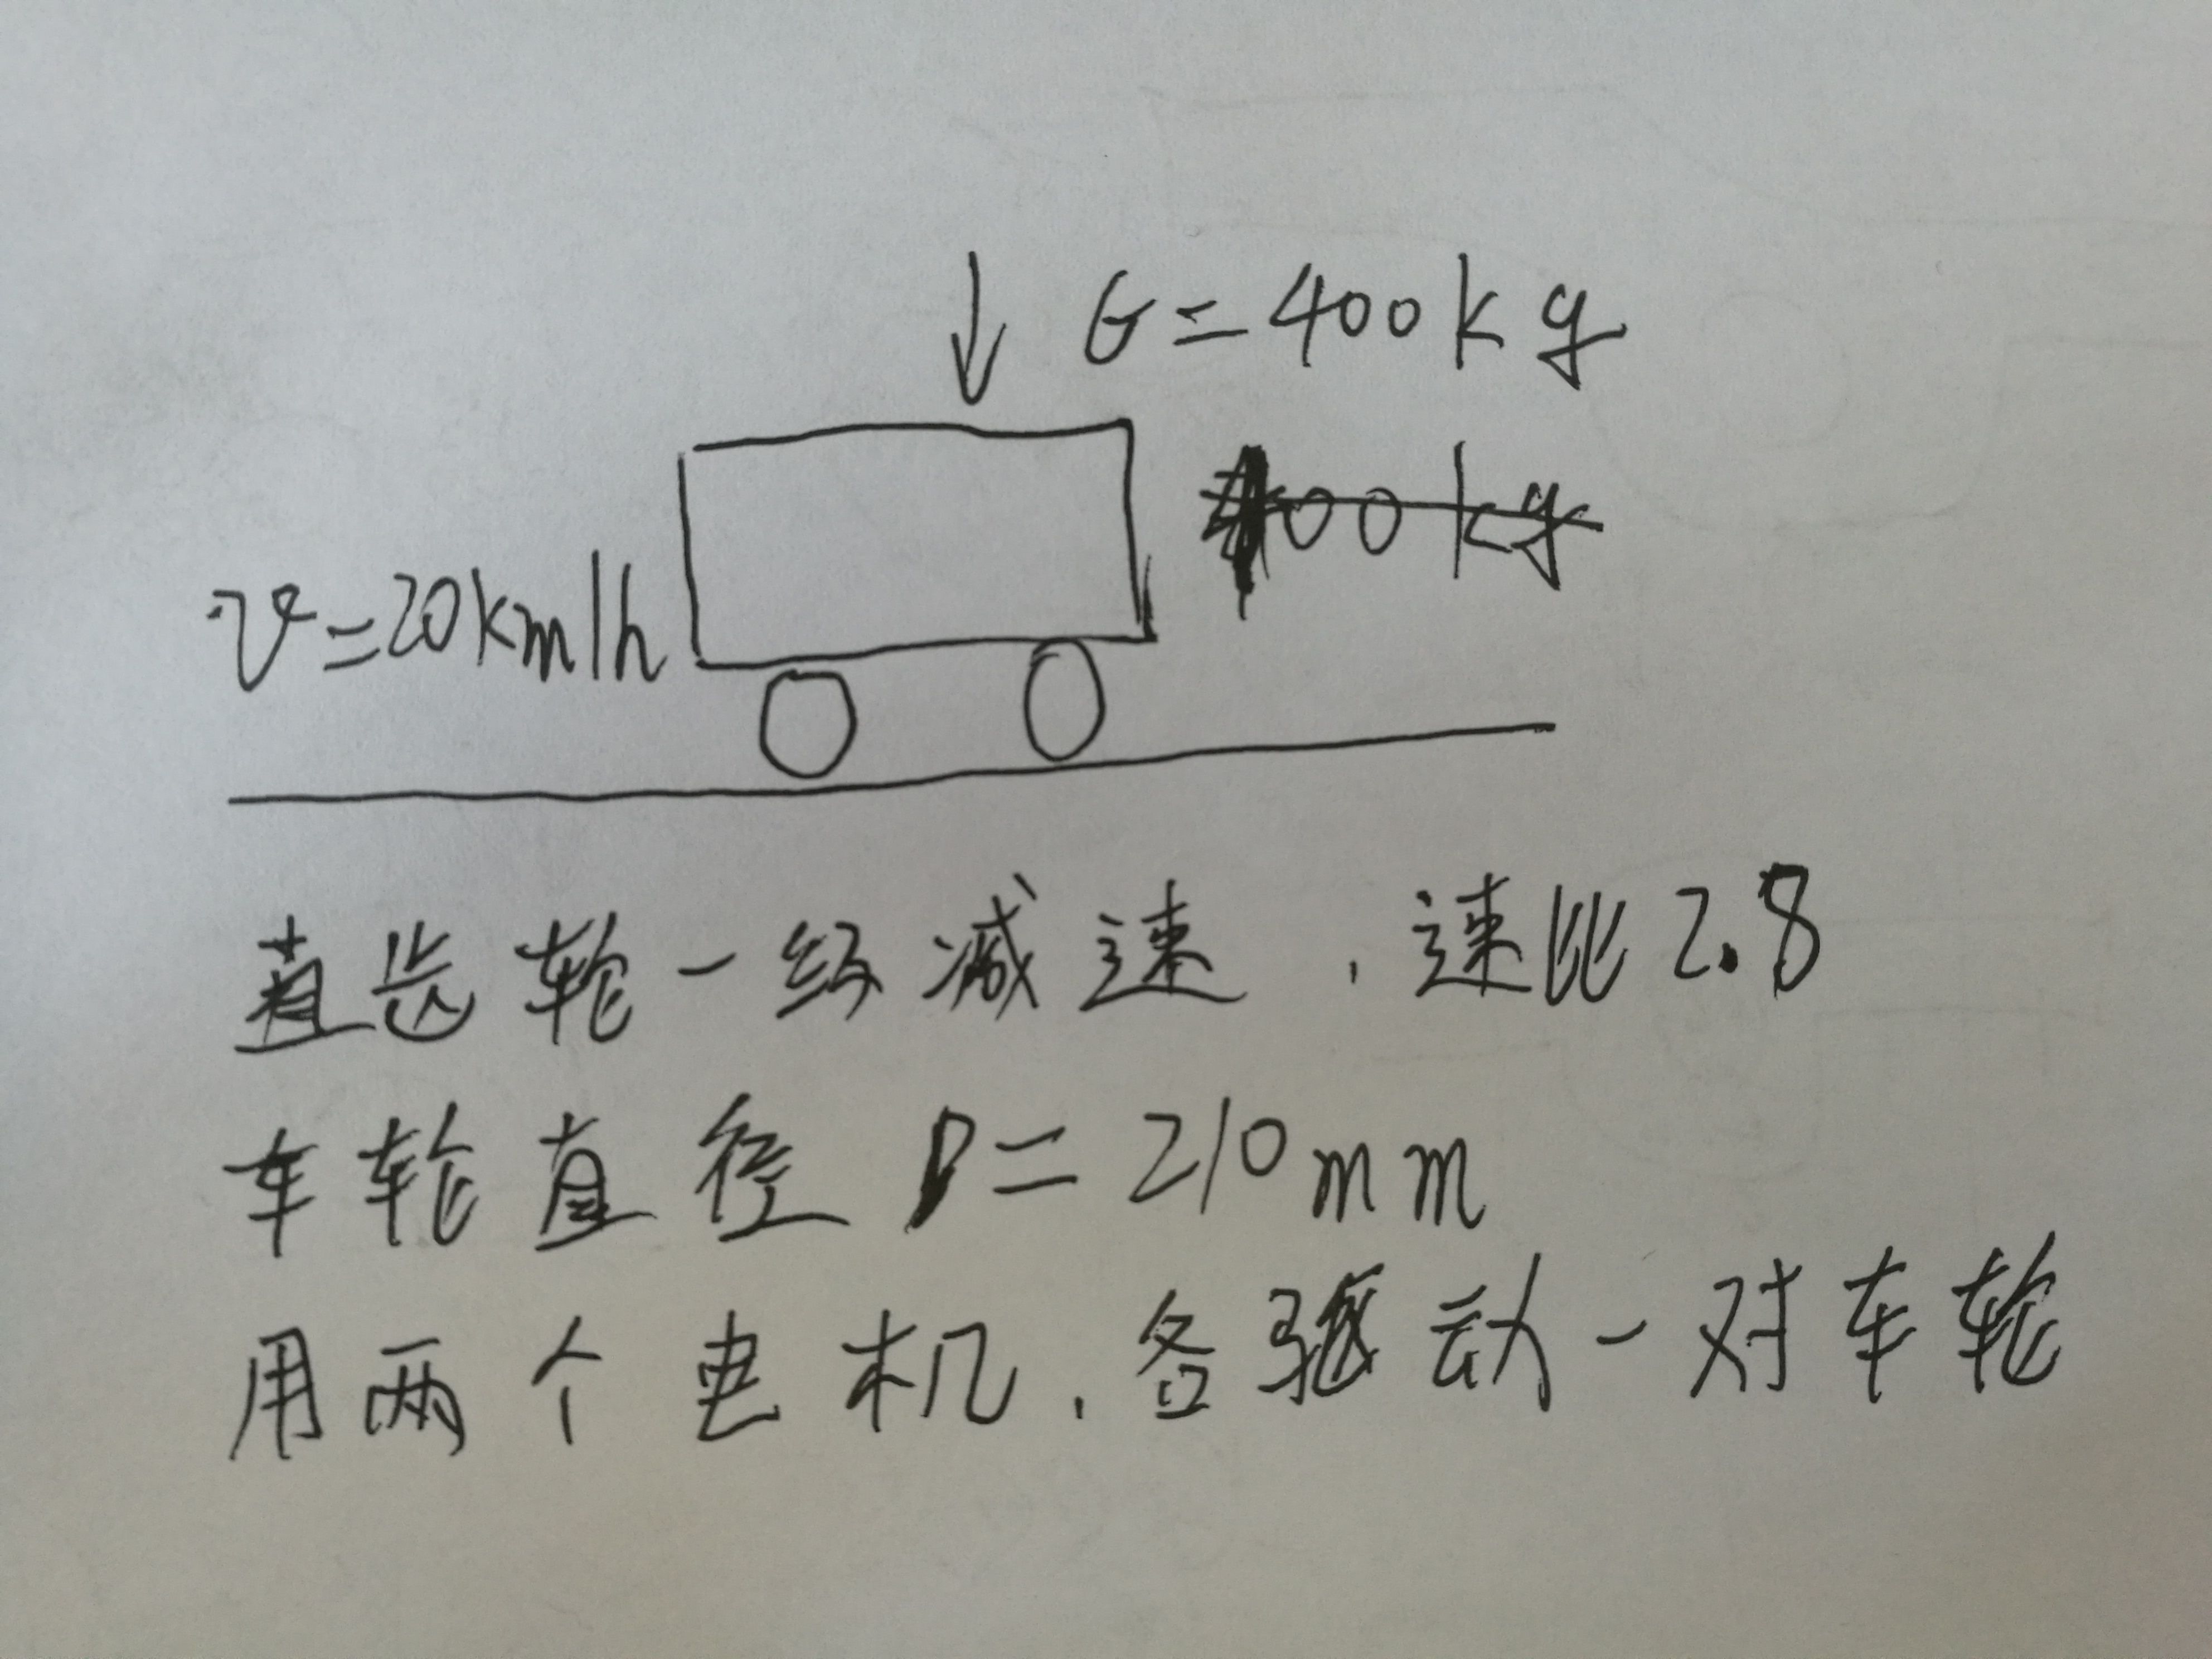 G=400kg
00kg
v=20km/h
直齿轮一级减速，速比2.8
车轮直径D=210mm
用两个电机，各驱动一对车轮